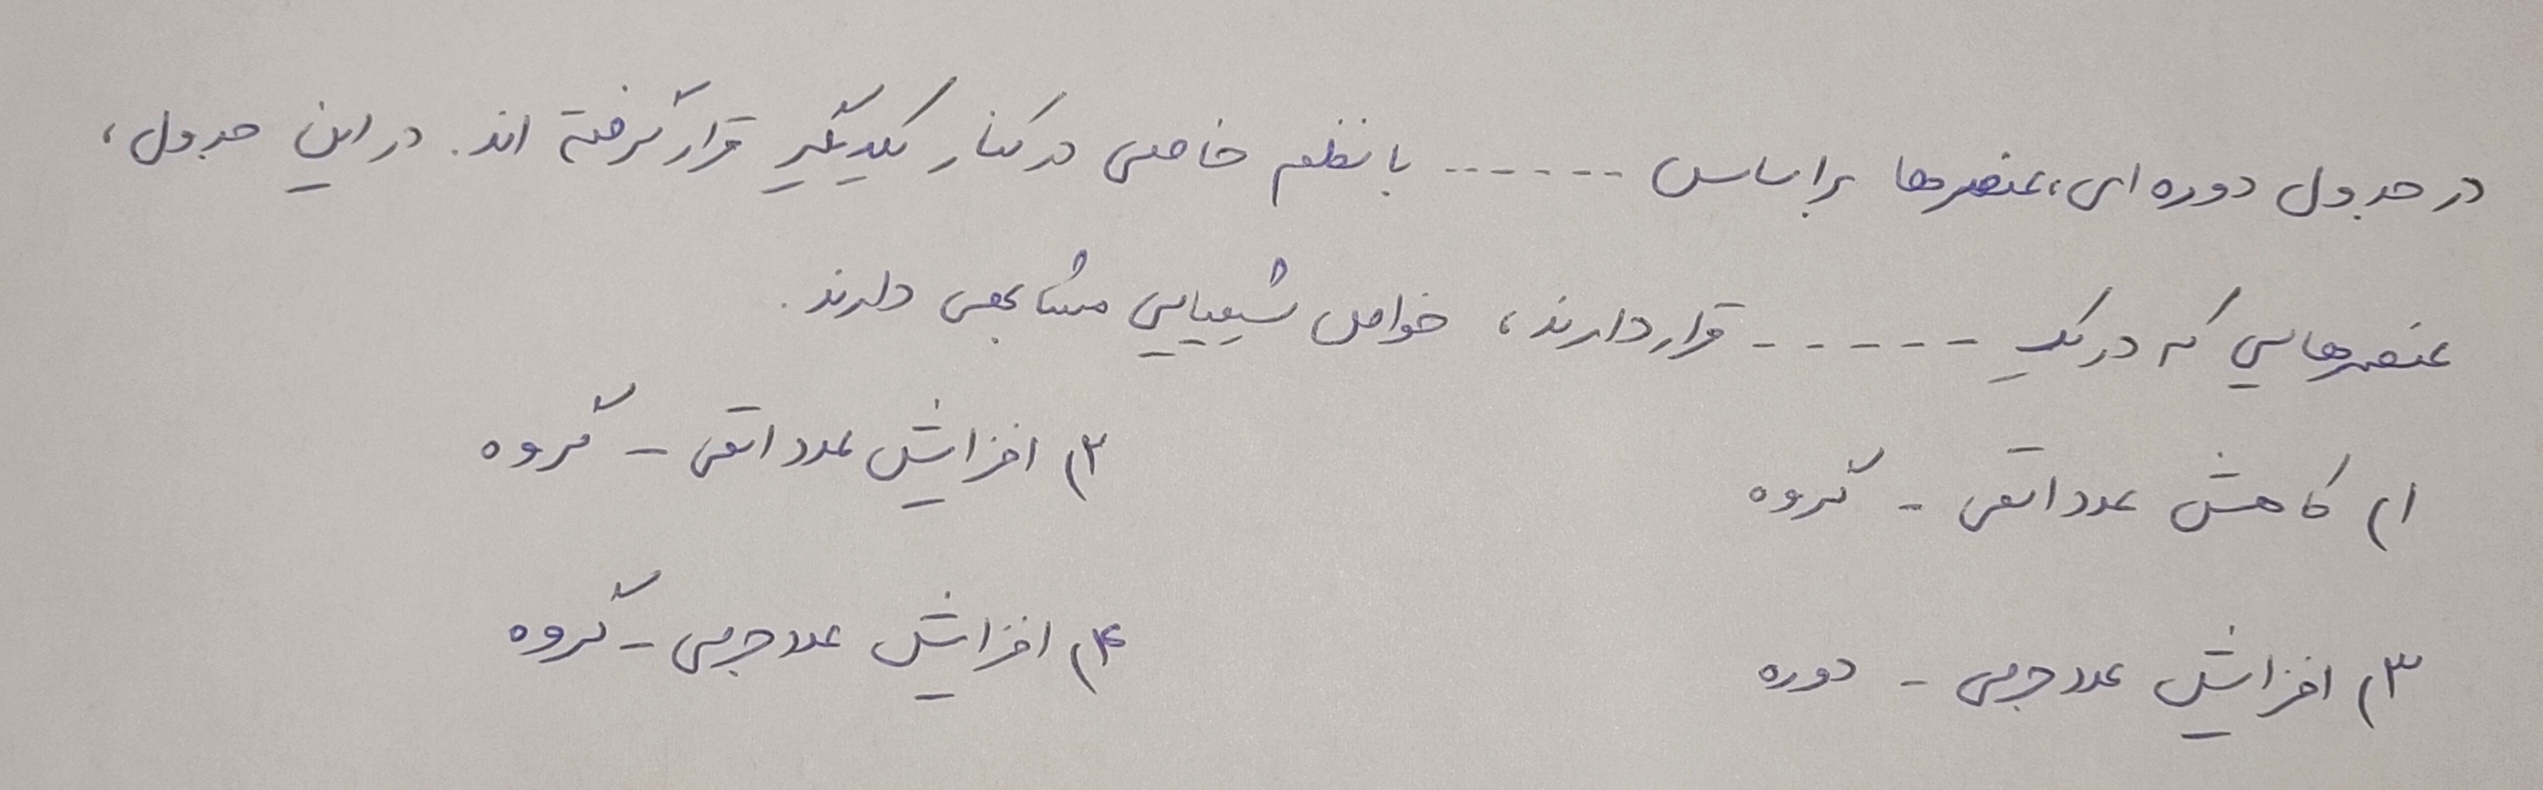 در جدول دوره ای، عنصرها براساس ------ با نظم خاصی در کنار یکدیگر قرار گرفته اند. در این جدول،
عنصرهایی که در یک ------ قرار دارند، خواص شیمیایی مشابهی دارند.
۱) کاهش عدد اتمی - گروه ۲) افزایش عدد اتمی - گروه
۳) افزایش عدد جرمی - دوره ۴) افزایش عدد جرمی - گروه